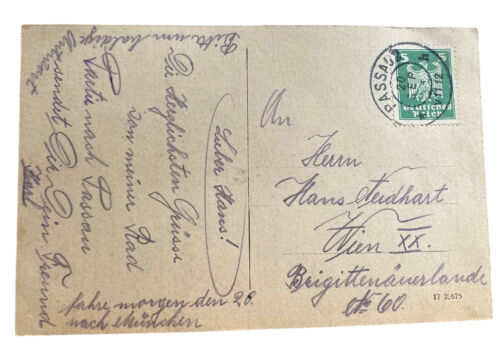 Bitte um baldige
Antwort
Lieber Hans!
Die herzlichsten Grüsse
von meiner Rad
Partie nach Passau
sendet Dir Dein Freund
Karl
fahre morgen den 20.
nach München
An
Herrn
Hans Neidhart
Wien XX.
Brigittenäuerlande
No 60.
PASSAU
20 SEP
11-12
5 5
Deutsches
Reich
17 2675